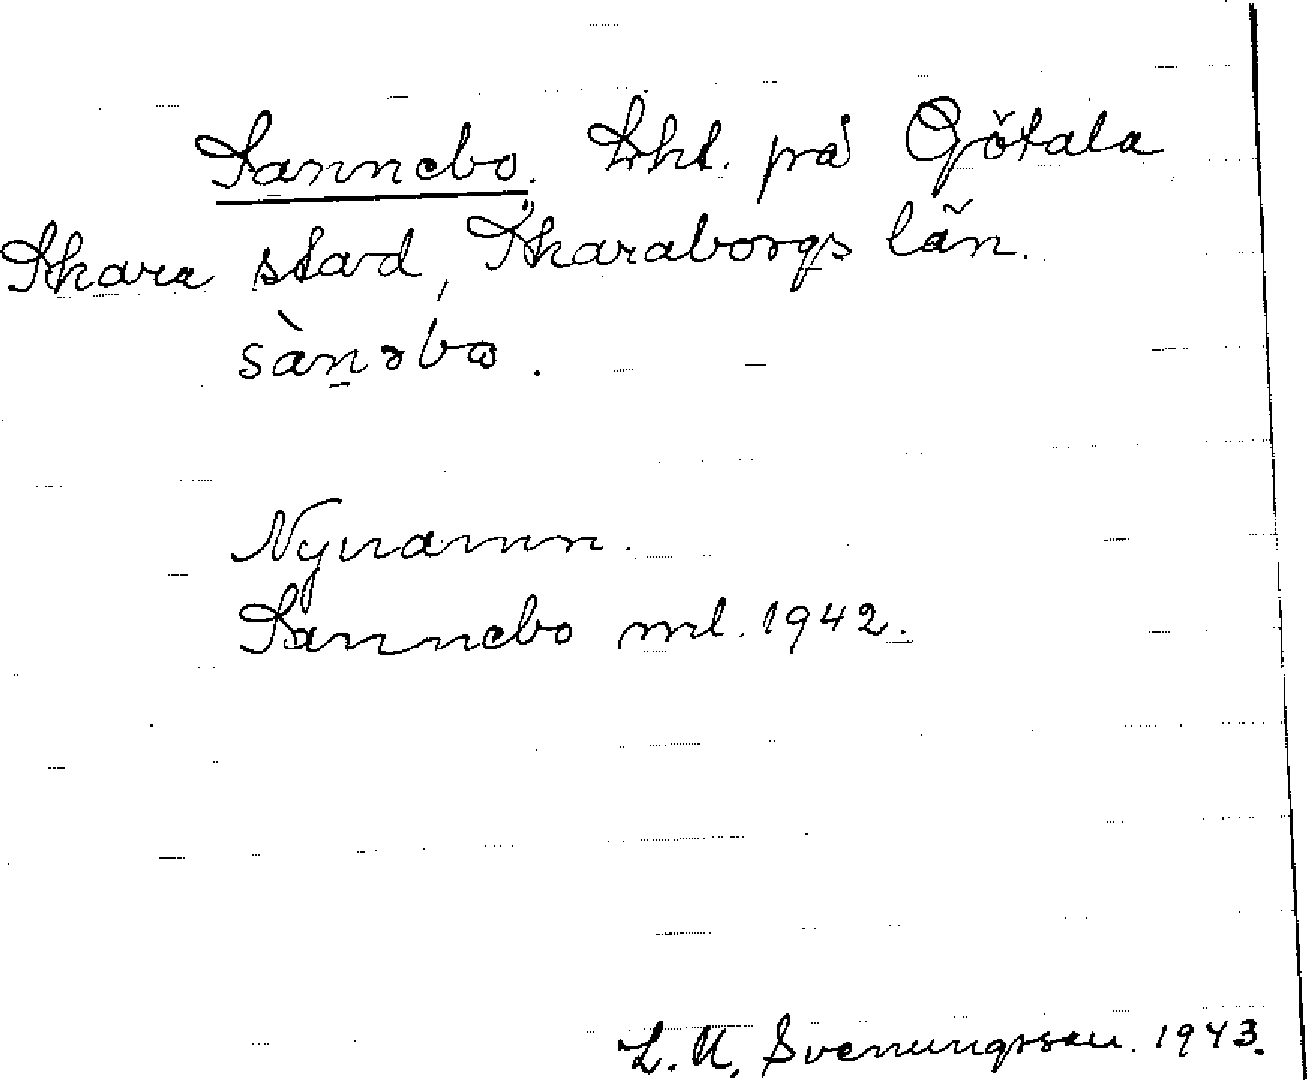 Sannebo. Lht. på Götala
Skara stad, Skaraborgs län.
sànəbo.
Nynamn.
Sannebo ml. 1942.
L. M. Svenungsson. 1943.